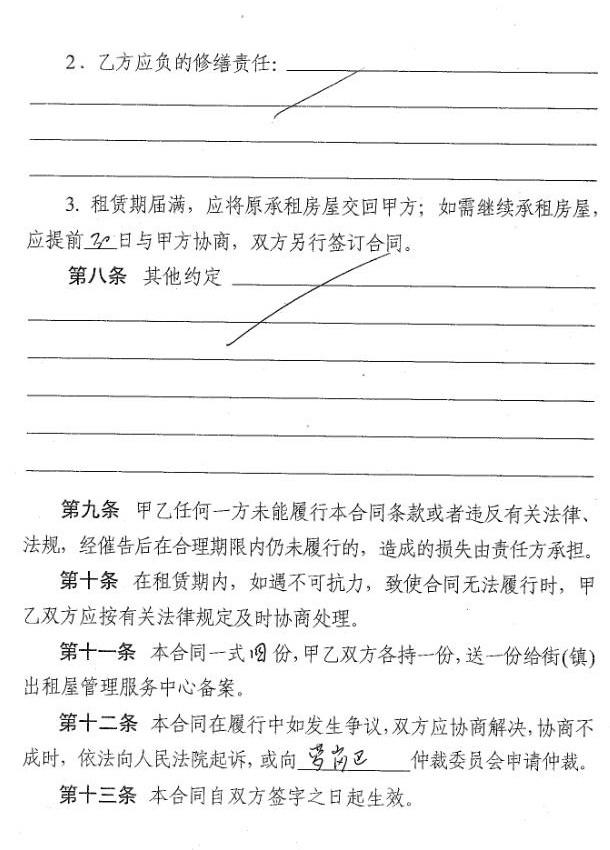 2. 乙方应负的修缮责任:
3. 租赁期届满，应将原承租房屋交回甲方；如需继续承租房屋，
应提前30日与甲方协商，双方另行签订合同。
第八条 其他约定
第九条 甲乙任何一方未能履行本合同条款或者违反有关法律、
法规，经催告后在合理期限内仍未履行的，造成的损失由责任方承担。
第十条 在租赁期内，如遇不可抗力，致使合同无法履行时，甲
乙双方应按有关法律规定及时协商处理。
第十一条 本合同一式四份，甲乙双方各持一份，送一份给街(镇)
出租屋管理服务中心备案。
第十二条 本合同在履行中如发生争议，双方应协商解决，协商不
成时，依法向人民法院起诉，或向萝岗区仲裁委员会申请仲裁。
第十三条 本合同自双方签字之日起生效。